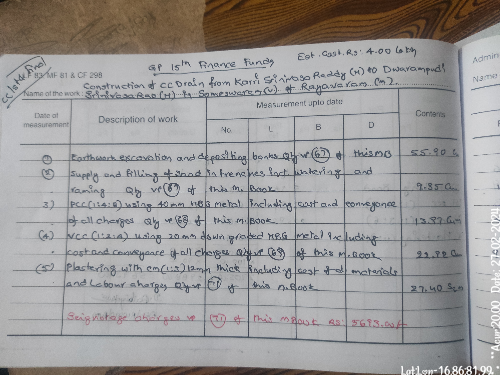 CC 1st & Final
GP 15th Finance Funds
Est. Cost. Rs: 4.00 Lakh
F. 83, MF 81 & CF 29B
Name of the work: Construction of CC Drain from Karri Srinivasa Reddy (H) to Dwarampudi
Srinivasa Rao (H) in Someswaram (V) of Rayavaram (M).
Date of measurement
Description of work
Measurement upto date
No.
L
B
D
Contents
① Earthwork excavation and depositing banks Qty vp (67) of this MB 55.90
② Supply and filling of sand in trenches incl. watering and
raming Qty vp (67) of this M. Book 9.85
3) PCC (1:4:8) using 40mm HBG metal including cost and conveyance
of all charges Qty vp (68) of this M. Book 13.97 Cum
④ VCC (1:2:4) using 20mm down graded HBG metal including
cost and conveyance of all charges Qty vp (69) of this M. Book
⑤ Plastering with CM (1:3) 12mm thick including cost of all materials
and Labour charges Qty vp (71) of this M. Book 27.40
Seigniorage charges vp (71) of this M Book Rs: 5693.00
Admin
Name
Lat Lon-16.868199